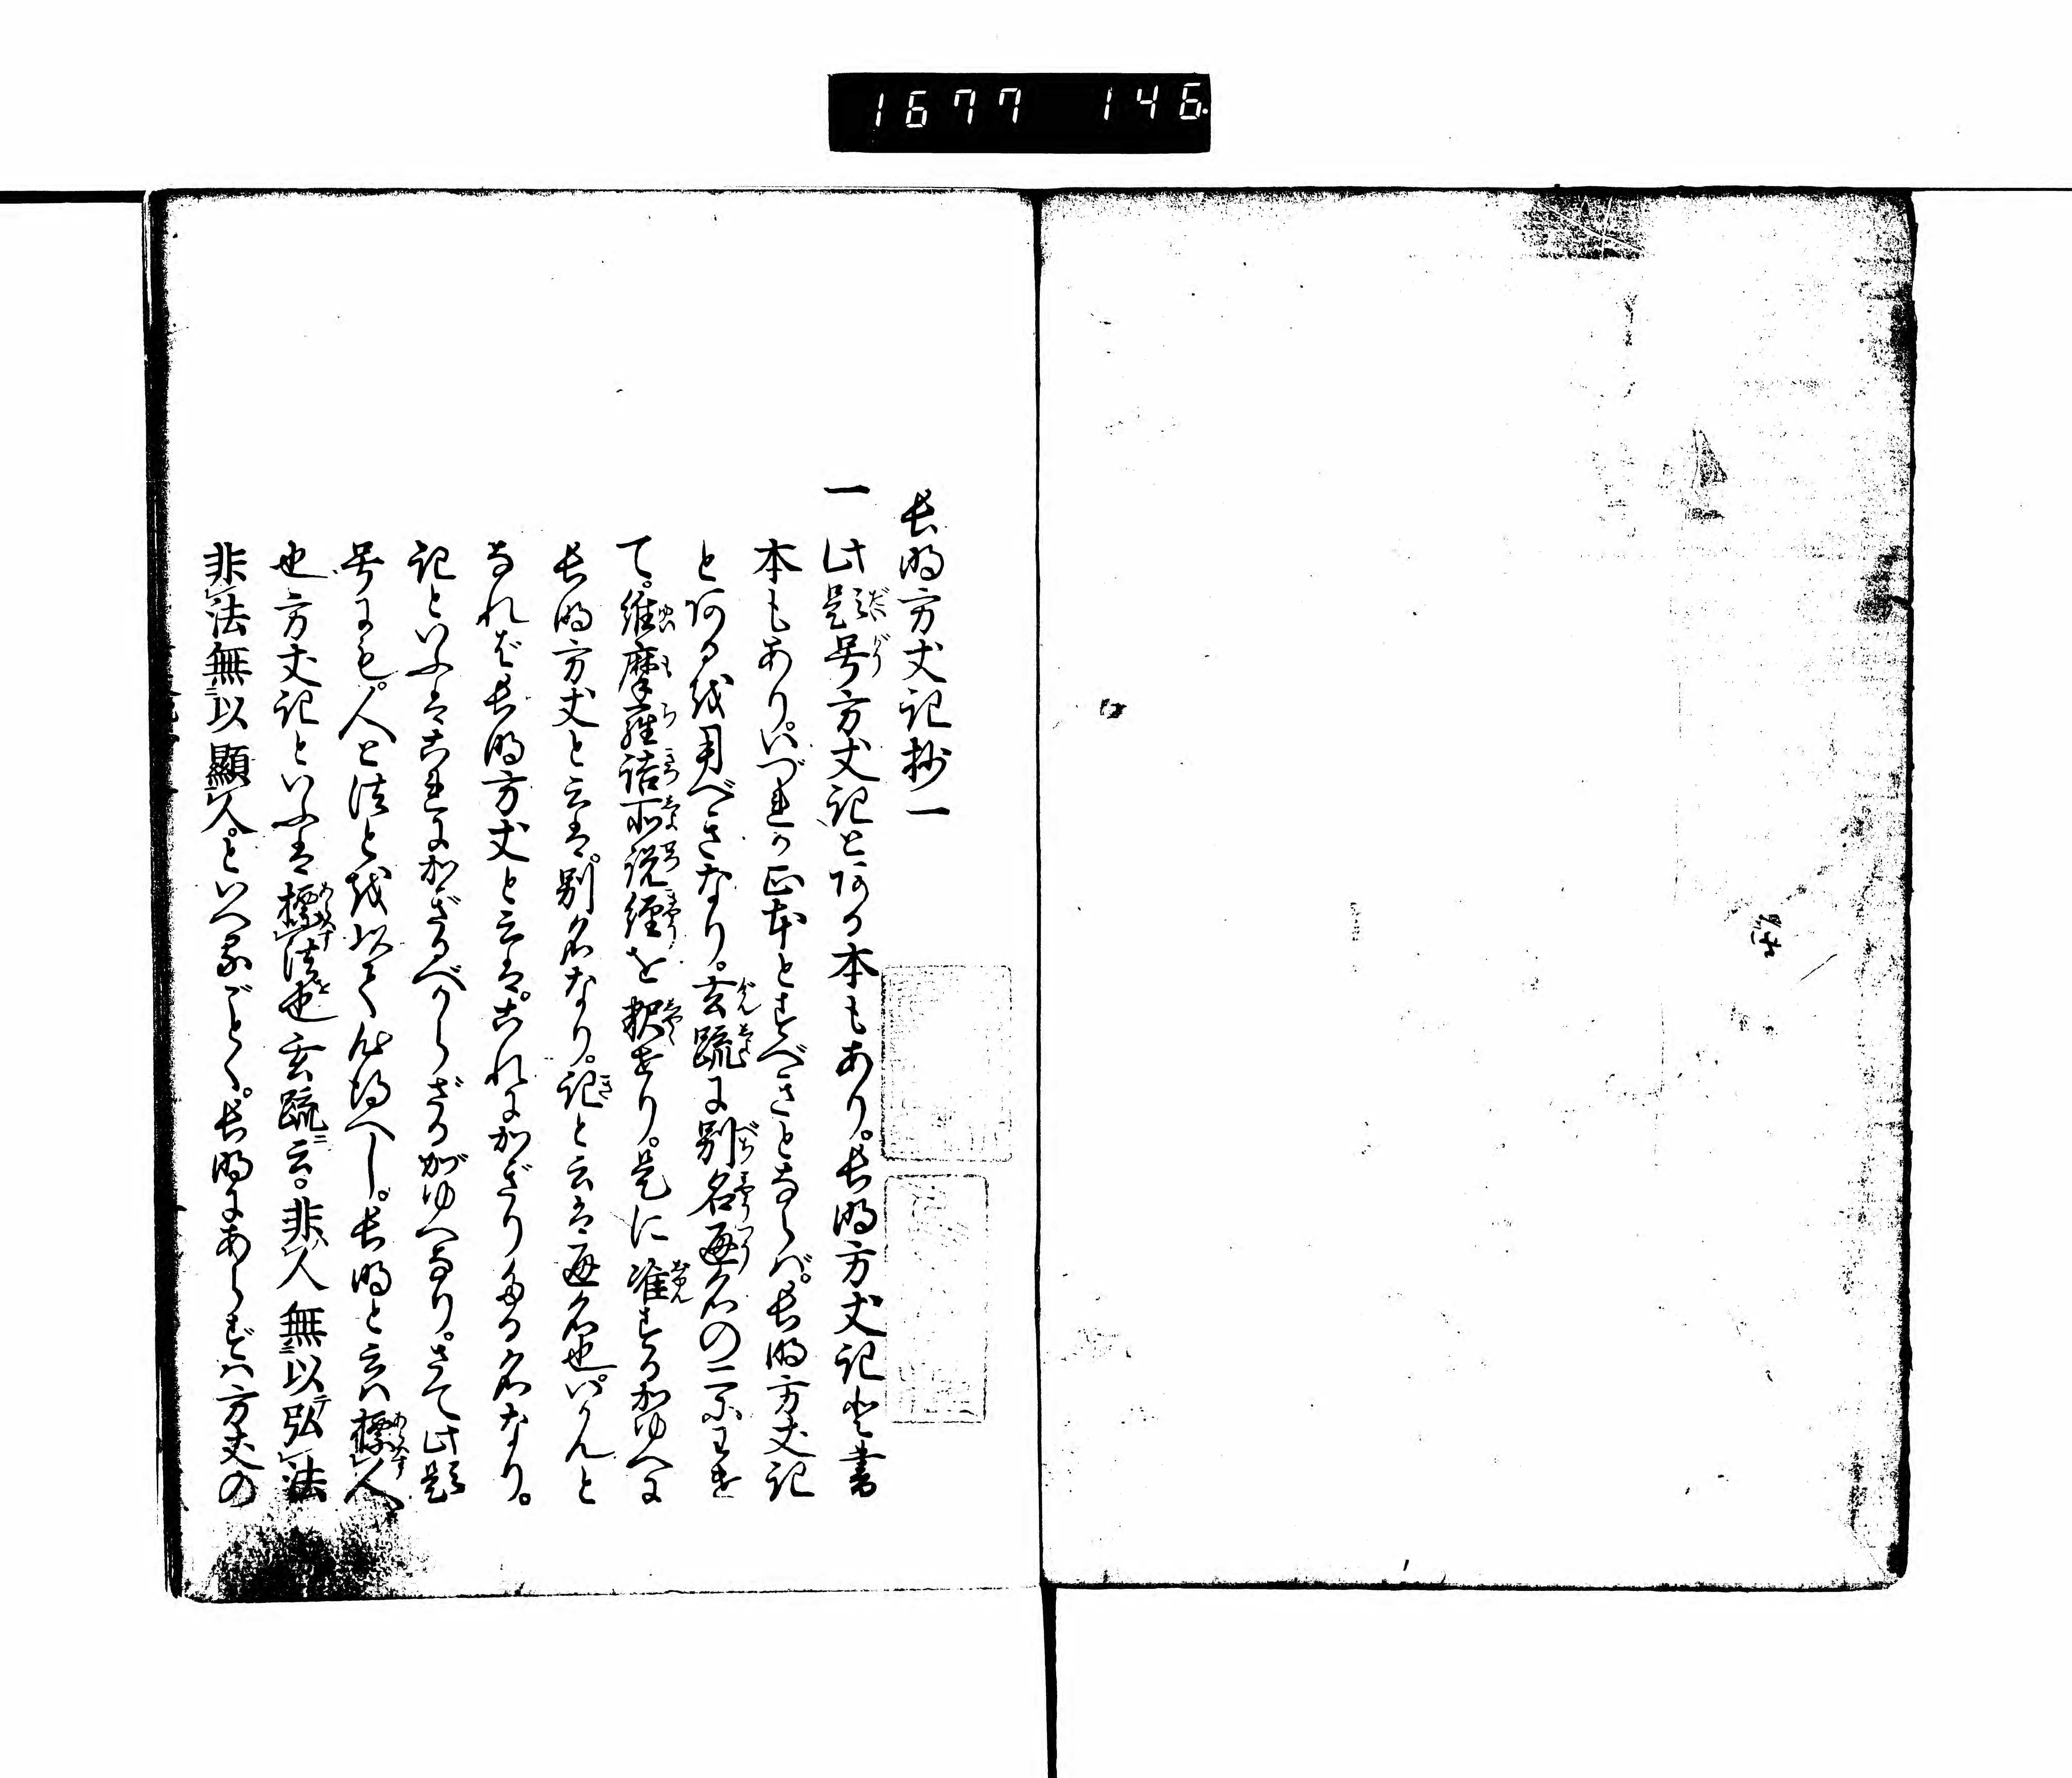 1677 146
長明方丈記抄一
一 此題号方丈記とある本もあり。長明方丈記と書
本もあり。いづれか正本とすべきとならば。長明方丈記
とあるを用べきなり。玄疏に別名通名の二あります
て。維摩羅詰所説経を釈せり。是に准ずるがゆへに
長明方丈と云は。別名なり。記と云は通名也。いかんと
なれば長明方丈と云は。これにかぎりたる名なり。
記といふはこれにかぎるべからざるがゆへなり。さて此題
号にも。人と法とを以て心得へし。長明と云は標人
也方丈記といふは標法也玄疏云。非人無以弘法
非法無以顕人。といへるごとく。長明にあらずは方丈の